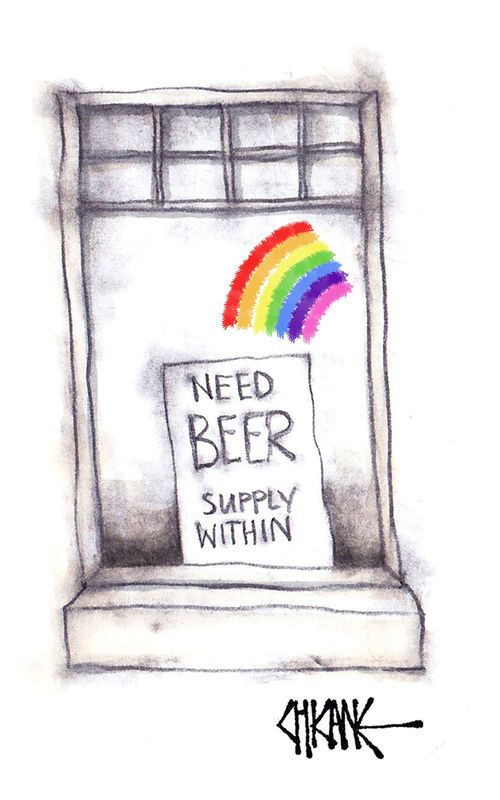 NEED
BEER
SUPPLY
WITHIN